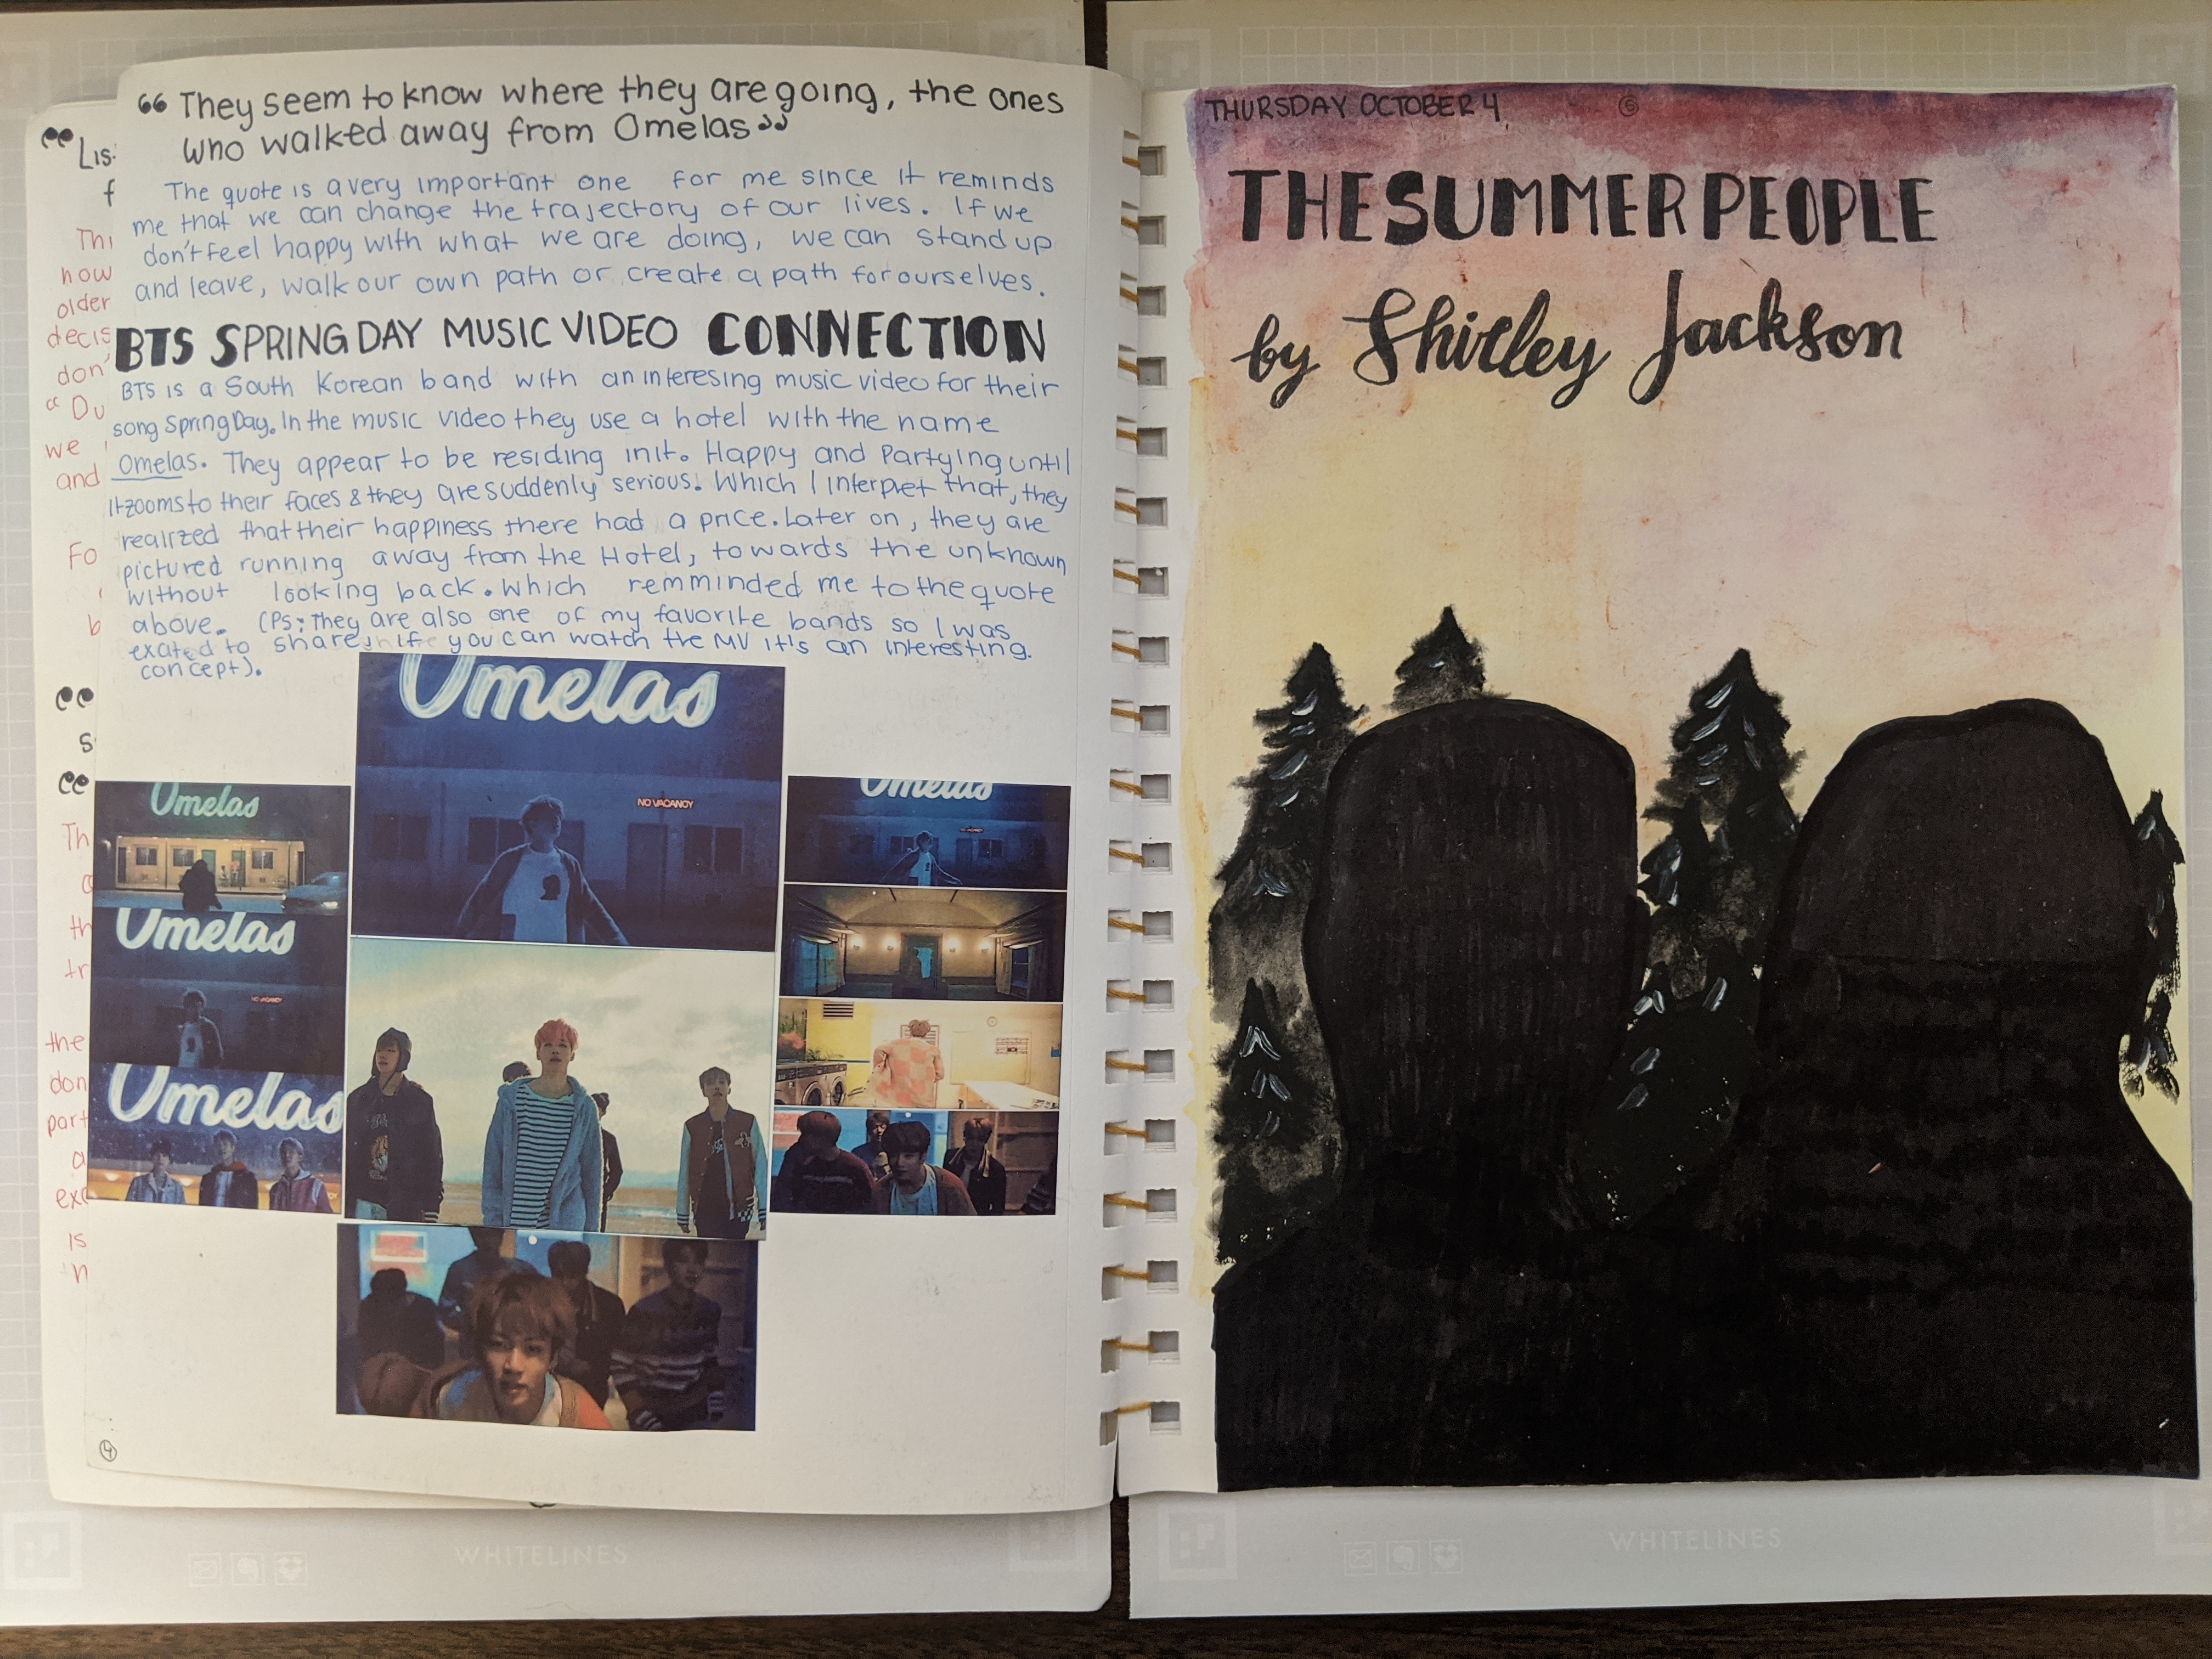 “ They seem to know where they are going, the ones
who walked away from Omelas ”
The quote is a very important one for me since it reminds
me that we can change the trajectory of our lives. If we
don't feel happy with what we are doing, we can stand up
and leave, walk our own path or create a path for ourselves.
BTS SPRING DAY MUSIC VIDEO CONNECTION
BTS is a South Korean band with an interesing music video for their
song Spring Day. In the music video they use a hotel with the name
Omelas. They appear to be residing in it. Happy and Partying until
it zooms to their faces & they are suddenly serious. Which I interpret that, they
realized that their happiness there had a price. Later on, they are
pictured running away from the Hotel, towards the unknown
without looking back. Which remminded me to the quote
above. (PS: They are also one of my favorite bands so I was
exated to share, if you can watch the MV it's an interesting
concept).
Omelas
NO VACANCY
Omelas
Omelas
NO VACANCY
Omelas
Omelas
NO VACANCY
4
“ Lis
f
Thi
now
older
decis
don'
“ Du
we
and
Fo
b
“
s
“
Th
a
th
tr
the
don
part
a
exc
is
n
THURSDAY OCTOBER 4
5
THE SUMMER PEOPLE
by Shirley Jackson
WHITELINES
WHITELINES